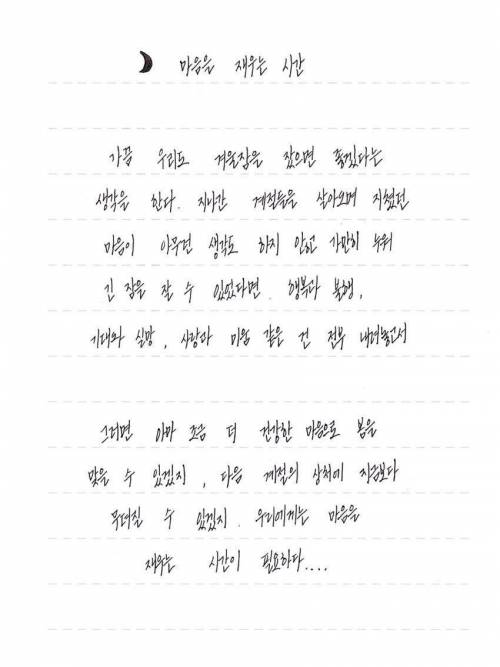 마음을 재우는 시간
가끔 우리도 겨울잠을 잤으면 좋겠다는
생각을 한다. 지나간 계절들을 살아오며 지쳤던
마음이 아무런 생각도 하지 않고 가만히 누워
긴 잠을 잘 수 있었다면. 행복과 불행,
기대와 실망, 사랑과 미움 같은 건 전부 내려놓고서
그러면 아마 조금 더 건강한 마음으로 봄을
맞을 수 있겠지, 다음 계절의 상처에 지금보다
무뎌질 수 있겠지. 우리에게는 마음을
재우는 시간이 필요하다....